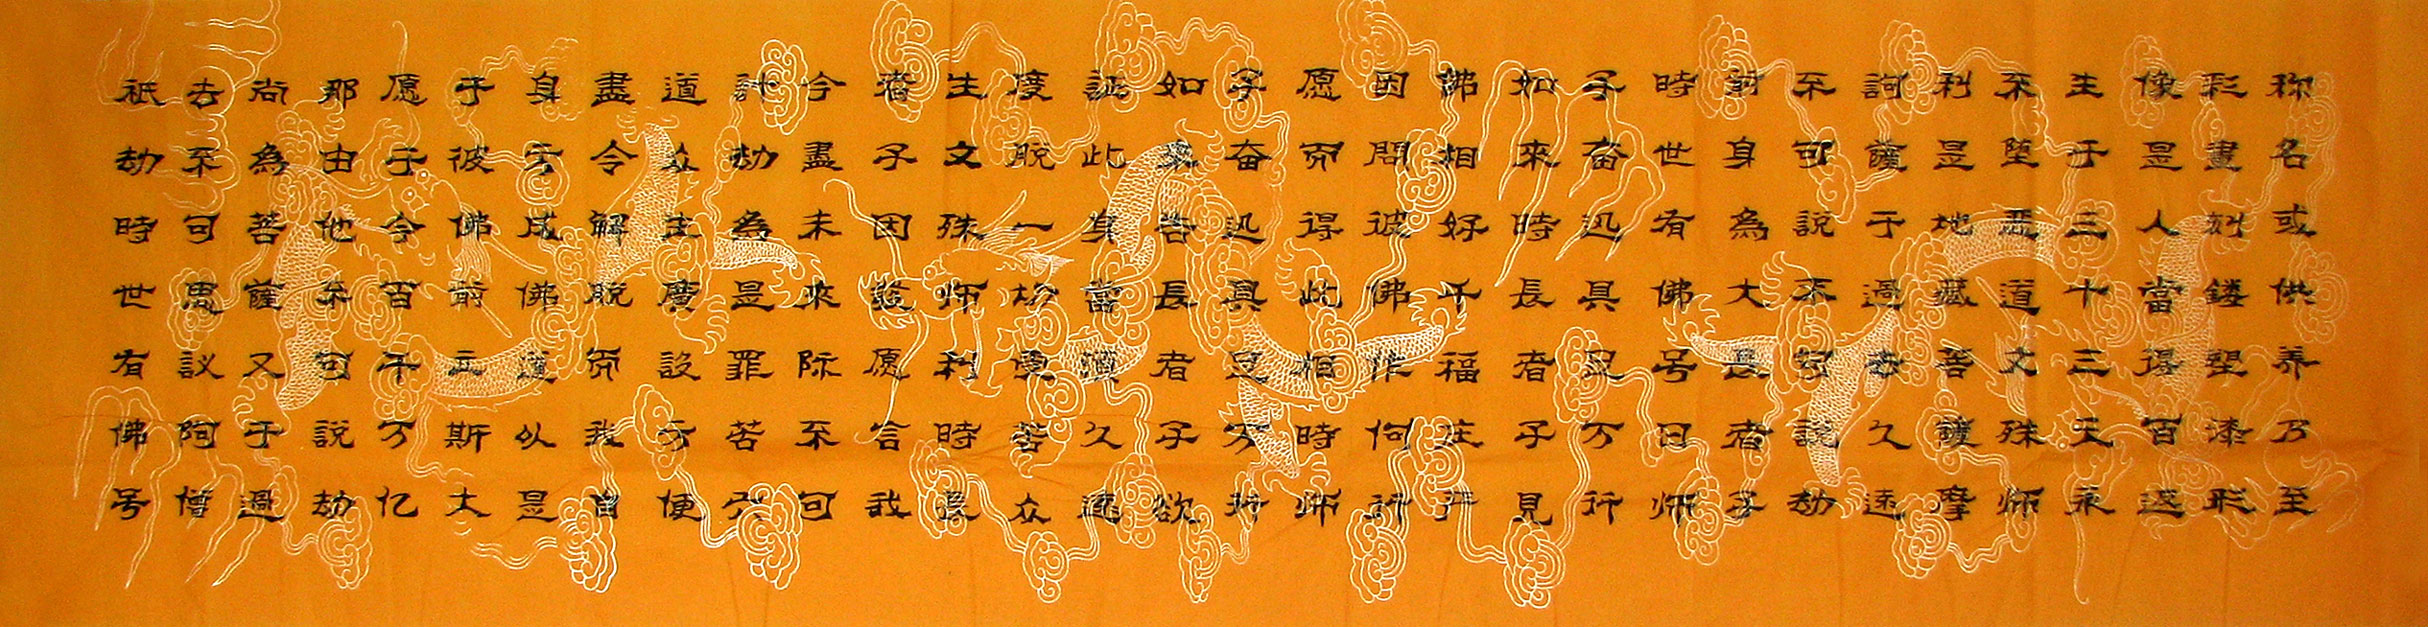 称名或供养乃至
彩畫刻鏤塑漆形
像是人當得百返
生于三十三天永
不堕惡道文殊师
利是地藏菩薩摩
訶薩于過去久遠
不可説不可説劫
前身為大長者子
時世有佛号曰师
子奋迅具足万行
如來時長者子見
佛相好千福庄严
因問彼佛作何行
愿而得此相時师
子奋迅具足万行
如來告長者子欲
証此身當須久遠
度脱一切受苦众
生文殊师利時長
者子因發愿言我
今盡未來际不可
計劫為是罪苦六
道众生廣設方便
盡令解脱而我自
身方成佛道以是
于彼佛前立斯大
愿于今百千万亿
那由他不可説劫
尚為菩薩又于過
去不可思議阿僧
祇劫時世有佛号